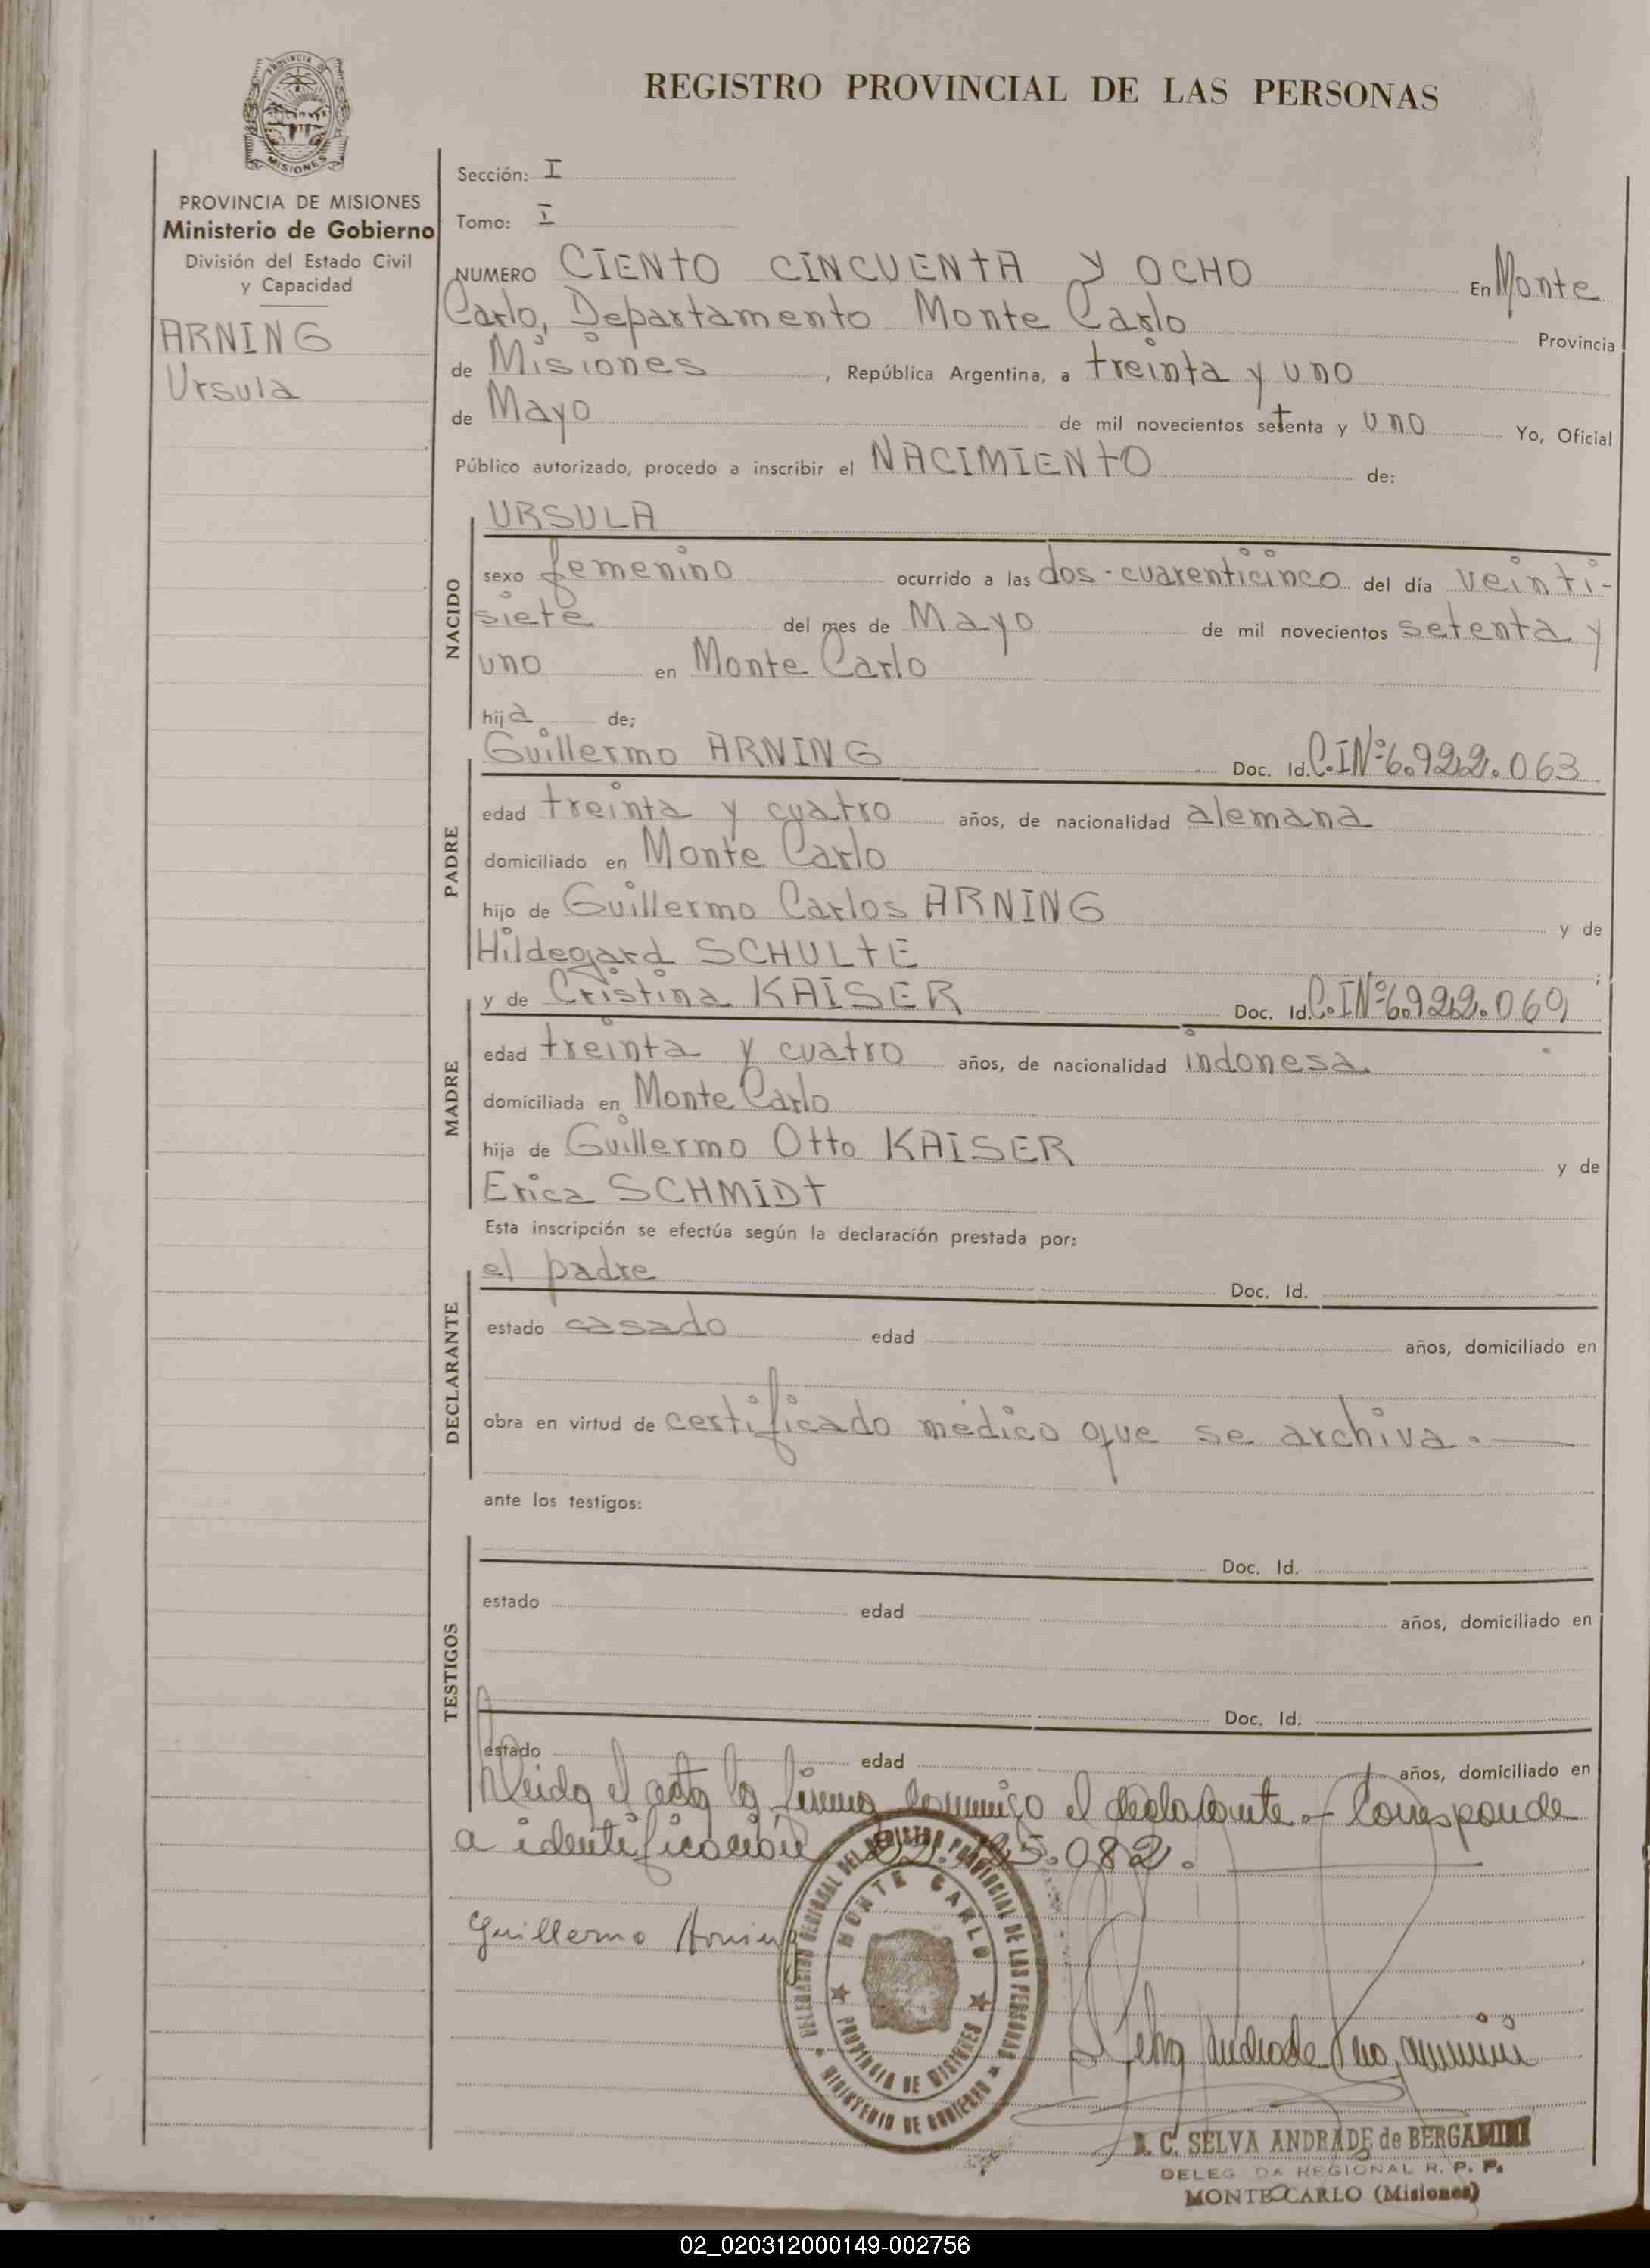 REGISTRO PROVINCIAL DE LAS PERSONAS
PROVINCIA DE
MISIONES
PROVINCIA DE MISIONES
Ministerio de Gobierno
División del Estado Civil
y Capacidad
ARNING
Ursula
Sección: I
Tomo: I
NUMERO CIENTO CINCUENTA y OCHO En Monte
Carlo, Departamento Monte Carlo Provincia
de Misiones, República Argentina, a treinta y uno
de Mayo de mil novecientos setenta y uno Yo, Oficial
Público autorizado, procedo a inscribir el NACIMIENTO de:
NACIDO
URSULA
sexo femenino ocurrido a las dos-cuarenticinco del día veinti-
siete del mes de Mayo de mil novecientos setenta y
uno en Monte Carlo
hija de;
PADRE
Guillermo ARNING Doc. Id. C.I Nº 6.922.063
edad treinta y cuatro años, de nacionalidad alemana
domiciliado en Monte Carlo
hijo de Guillermo Carlos ARNING y de
Hildegard SCHULTE ;
MADRE
y de Cristina KAISER Doc. Id. C.I Nº 6.922.069
edad treinta y cuatro años, de nacionalidad indonesa.
domiciliada en Monte Carlo
hija de Guillermo Otto KAISER y de
Erica SCHMIDT
Esta inscripción se efectúa según la declaración prestada por:
DECLARANTE
el padre Doc. Id.
estado casado edad años, domiciliado en
obra en virtud de certificado médico que se archiva.
ante los testigos:
TESTIGOS
Doc. Id.
estado edad años, domiciliado en
Doc. Id.
estado edad años, domiciliado en
Leida el acta la firma conmigo el declarante.- Corresponde
a identificación 22.125.082.
Guillermo Arning
DELEGACION REGIONAL DEL REGISTRO PROVINCIAL DE LAS PERSONAS
MONTE CARLO
PROVINCIA DE MISIONES
MINISTERIO DE GOBIERNO
Selva Andrade
C. SELVA ANDRADE de BERGAMINI
DELEGADA REGIONAL R. P. P.
MONTECARLO (Misiones)
02_020312000149-002756